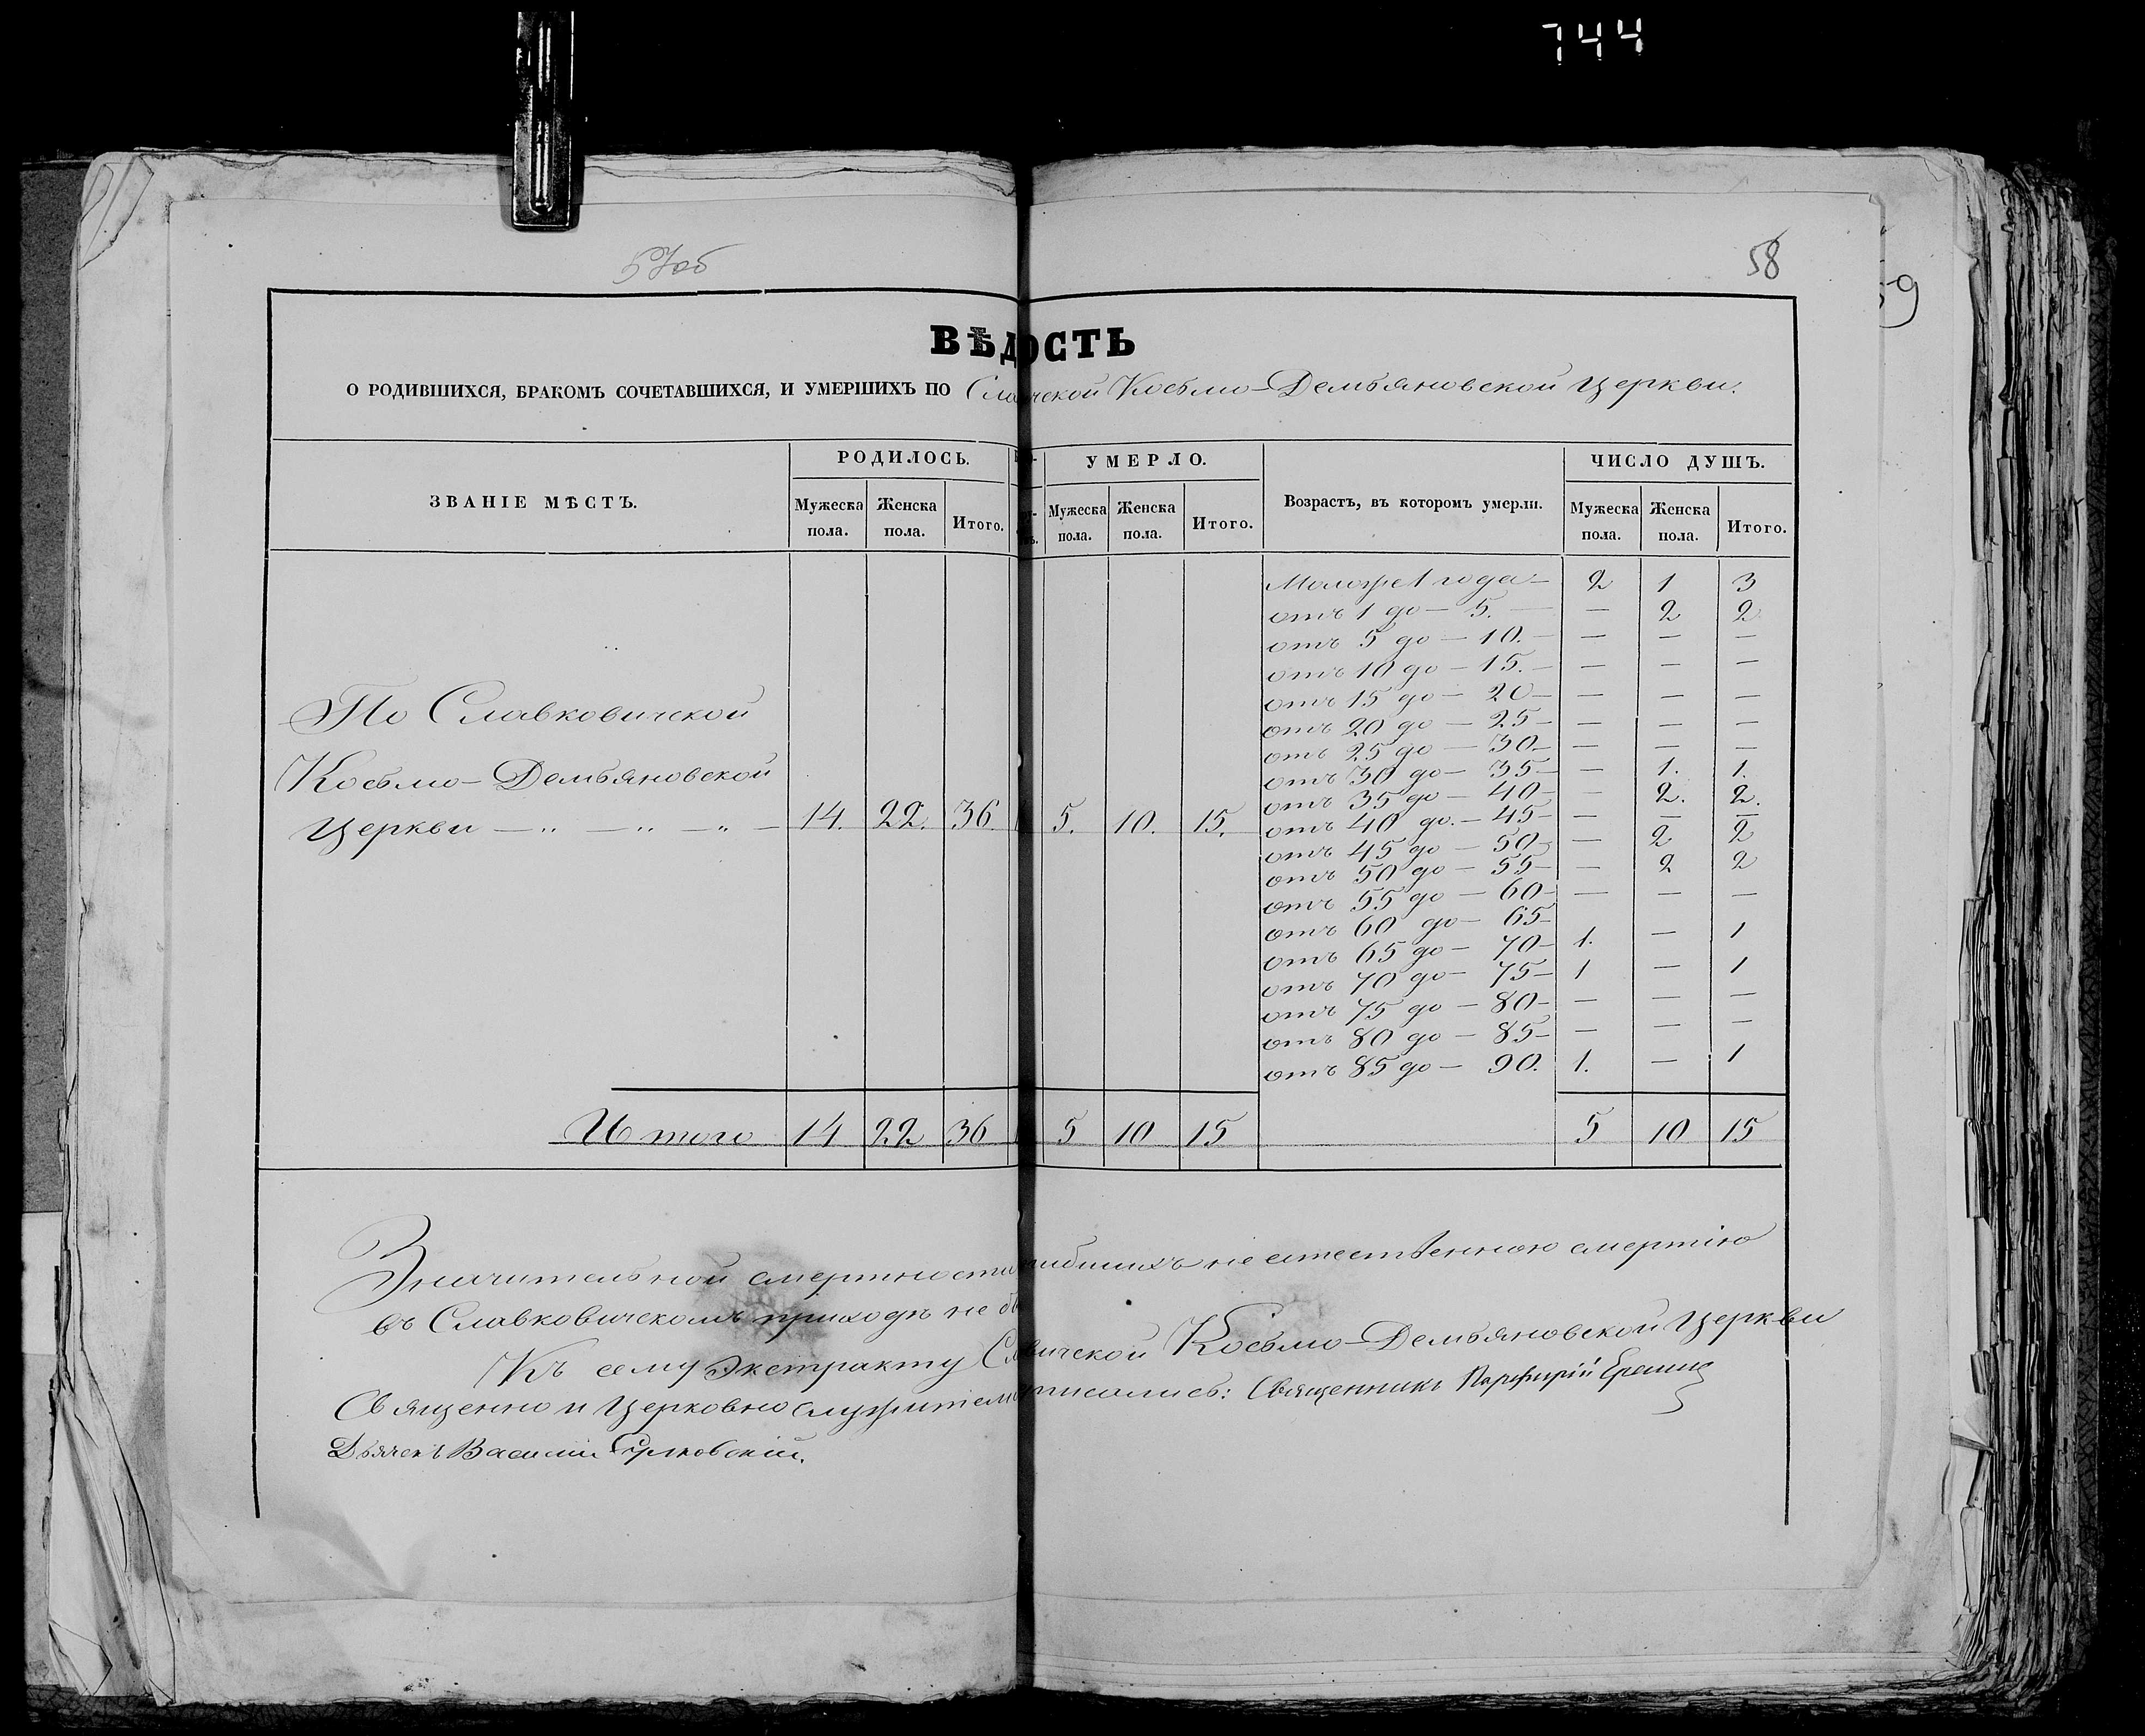 744
57об
58
59
ВѢДОСТЬ
О РОДИВШИХСЯ, БРАКОМЪ СОЧЕТАВШИХСЯ, И УМЕРШИХЪ ПО Слаческой Косьмо-Демьяновской церкви.
ЗВАНІЕ МѢСТЪ. РОДИЛОСЬ. УМЕРЛО. Возрастъ, въ которомъ умерли. ЧИСЛО ДУШЪ.
Мужеска пола. Женска пола. Итого. Мужеска пола. Женска пола. Итого. Мужеска пола. Женска пола. Итого.
Моложе 1 года — 2 1 3
отъ 1 до — 5. — — 2 2
отъ 5 до — 10. — — — —
отъ 10 до — 15. — — — —
отъ 15 до — 20 — — — —
отъ 20 до — 25 — — — —
отъ 25 до — 30 — — — —
отъ 30 до — 35 — — 1. 1.
отъ 35 до — 40 — — 2. 2.
отъ 40 до. — 45 — — — —
отъ 45 до — 50 — — 2 2
отъ 50 до — 55 — — 2 2
отъ 55 до — 60 — — — —
отъ 60 до — 65
отъ 65 до — 70 — 1. — 1
отъ 70 до — 75 — 1 — 1
отъ 75 до — 80 — — — —
отъ 80 до — 85 — — — —
отъ 85 до — 90. 1. — 1
По Славковичской
Косьмо-Демьяновской
церкви — „ — „ — „ — 14. 22. 36. 5. 10. 15.
Итого 14 22 36 5 10 15 5 10 15
Значительной смертности гибшихъ не естественною смертію
въ Славковичскомъ приходѣ не
Къ сему экстракту Славичской Косьмо-Демьяновской церкви
Священно и церковно служители писались: Священникъ Парфирій
Дьячекъ Василій